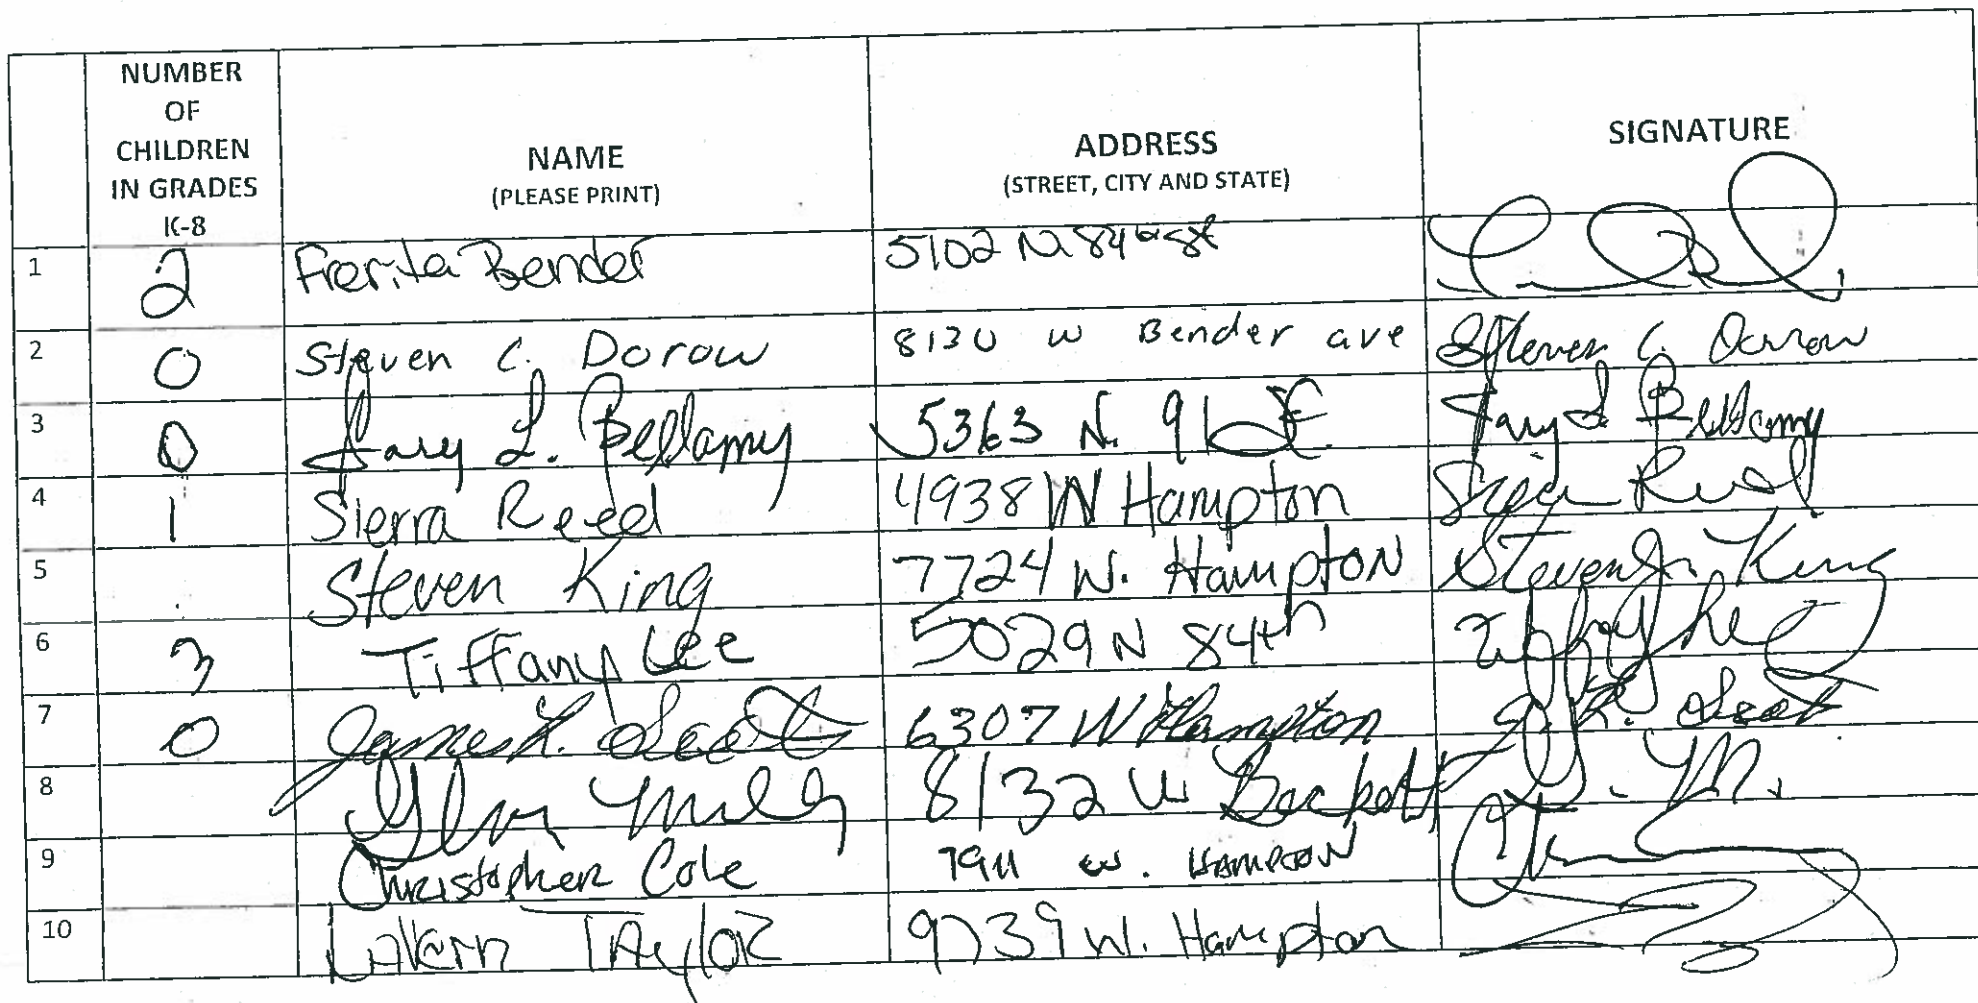 NUMBER
OF
CHILDREN
IN GRADES
K-8
NAME
(PLEASE PRINT)
ADDRESS
(STREET, CITY AND STATE)
SIGNATURE
1 2 Bender 5102 N. 84th St
2 0 Steven C. Dorow 8130 W Bender ave Steven C. Dorow
3 0 Gary L. Bellamy 5363 N. 91 St Gary L. Bellamy
4 1 Sierra Reed 4938 W Hampton Sierra Reed
5 Steven King 7724 W. Hampton Steven King
6 3 Tiffany Lee 5029 N 84th Tiffany Lee
7 0 James R. Scott 6307 W Hampton J. R. Scott
8 8132 W Beckett
9 Christopher Cole 7911 W. HAMPTON
10 Taylor 9739 W. Hampton